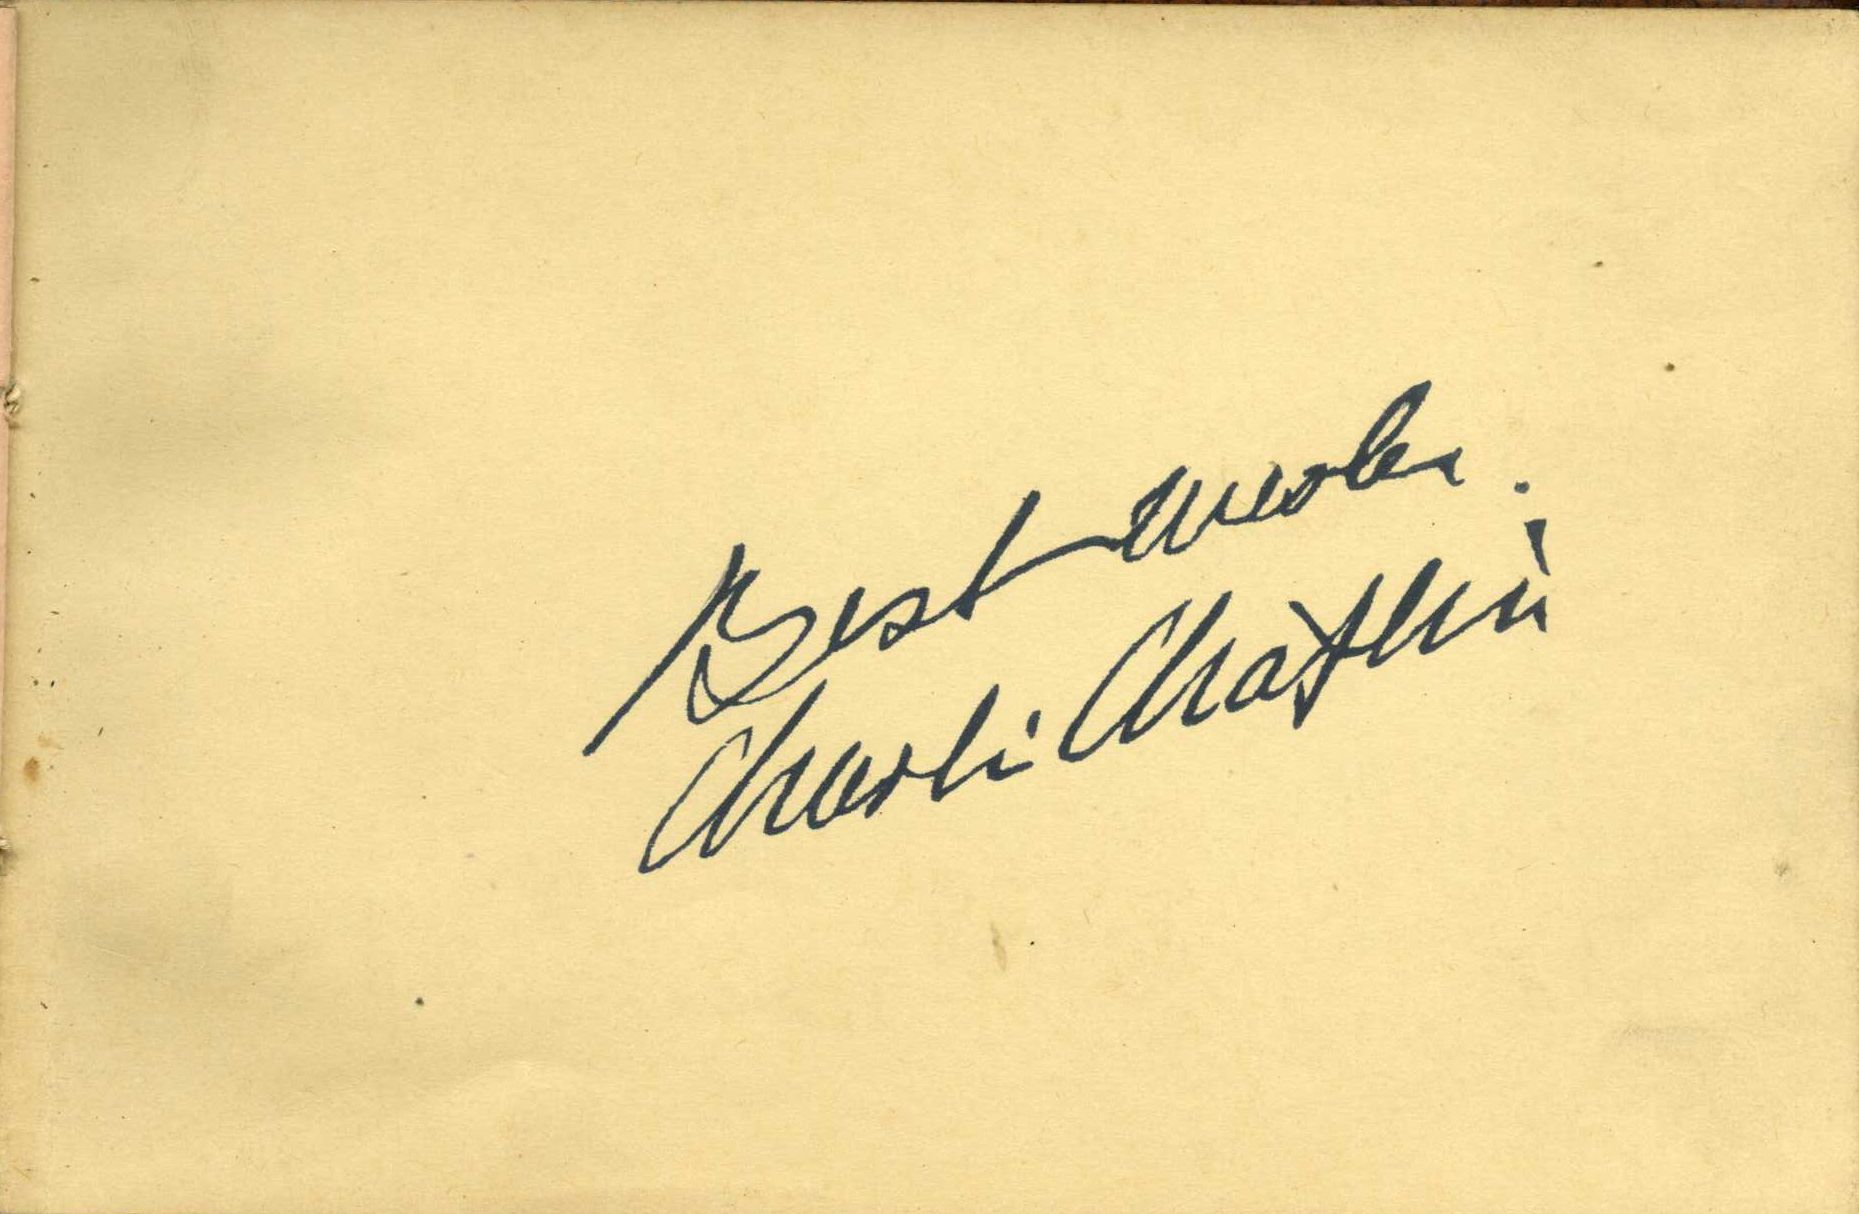 Best wishes.
Charlie Chaplin